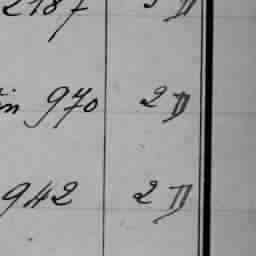 2187
in 970 2 D
942 2 D